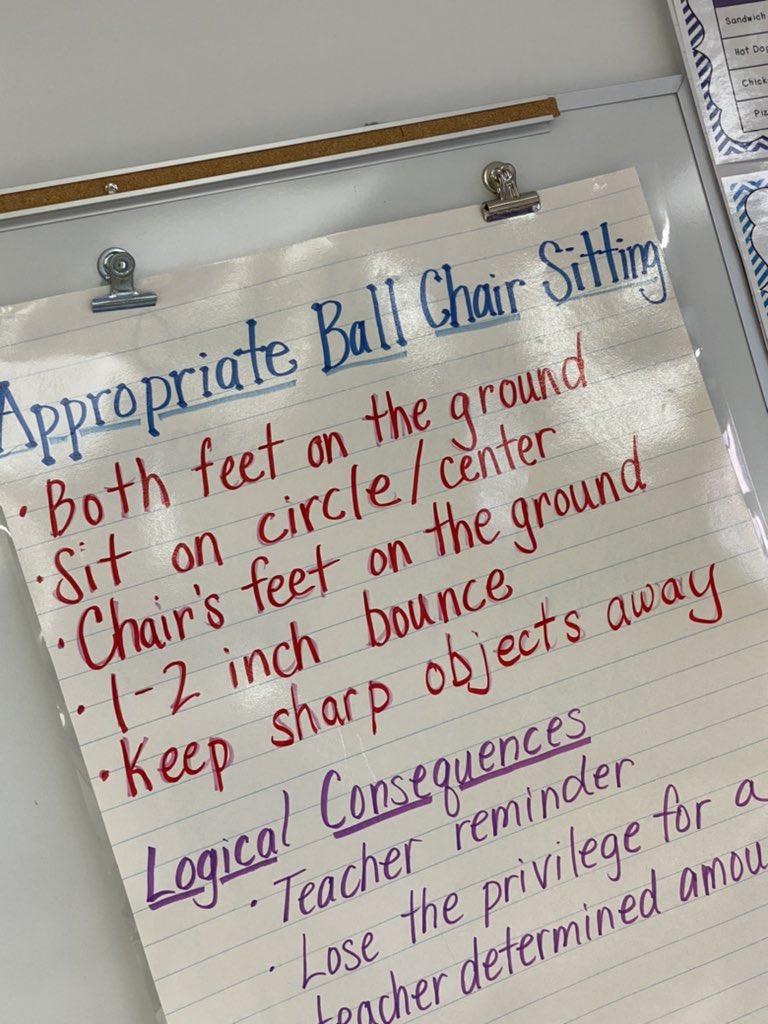 Sandwich
Hot Dog
Appropriate Ball Chair Sitting
· Both feet on the ground
· Sit on circle/center
· Chair's feet on the ground
· 1-2 inch bounce
· Keep sharp objects away
Logical Consequences
· Teacher reminder
· Lose the privilege for a
teacher determined amou